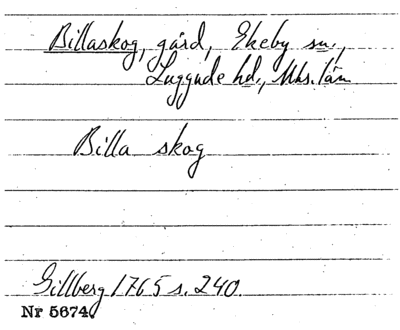 Billaskog, gård, Ekeby sn.,
Luggude hd., Mhs. län
Billa skog
Gillberg 1765 s. 240.
Nr 5674.